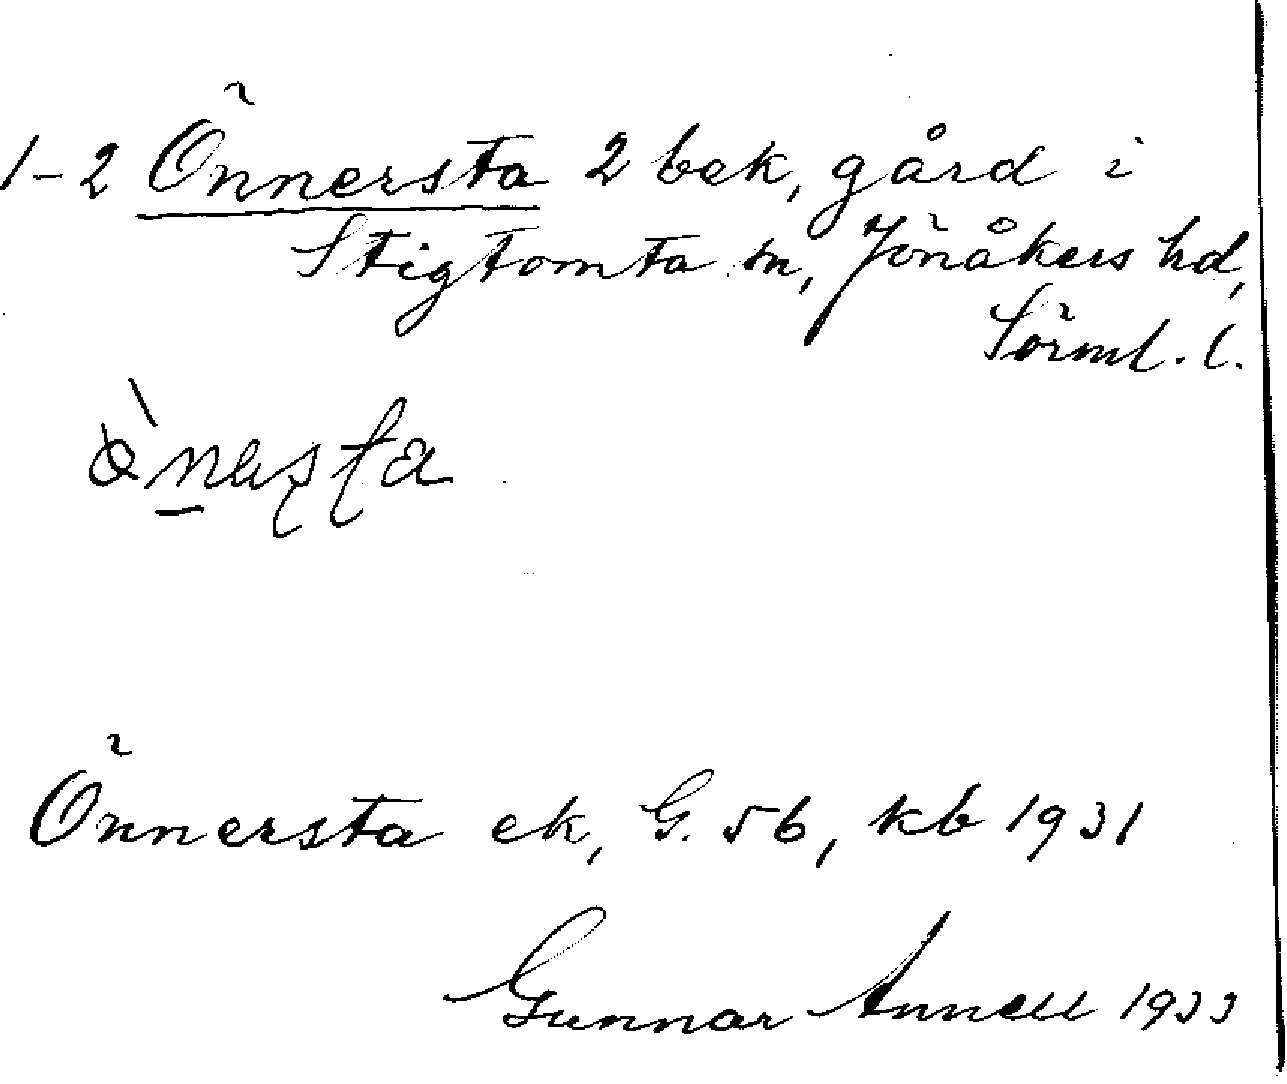 1-2 Önnersta 2 bek, gård i
Stigtomta sn, Jönåkers hd,
Sörml. l.
Önnersta ek, G. 56, kb 1931
Gunnar Annell 1933